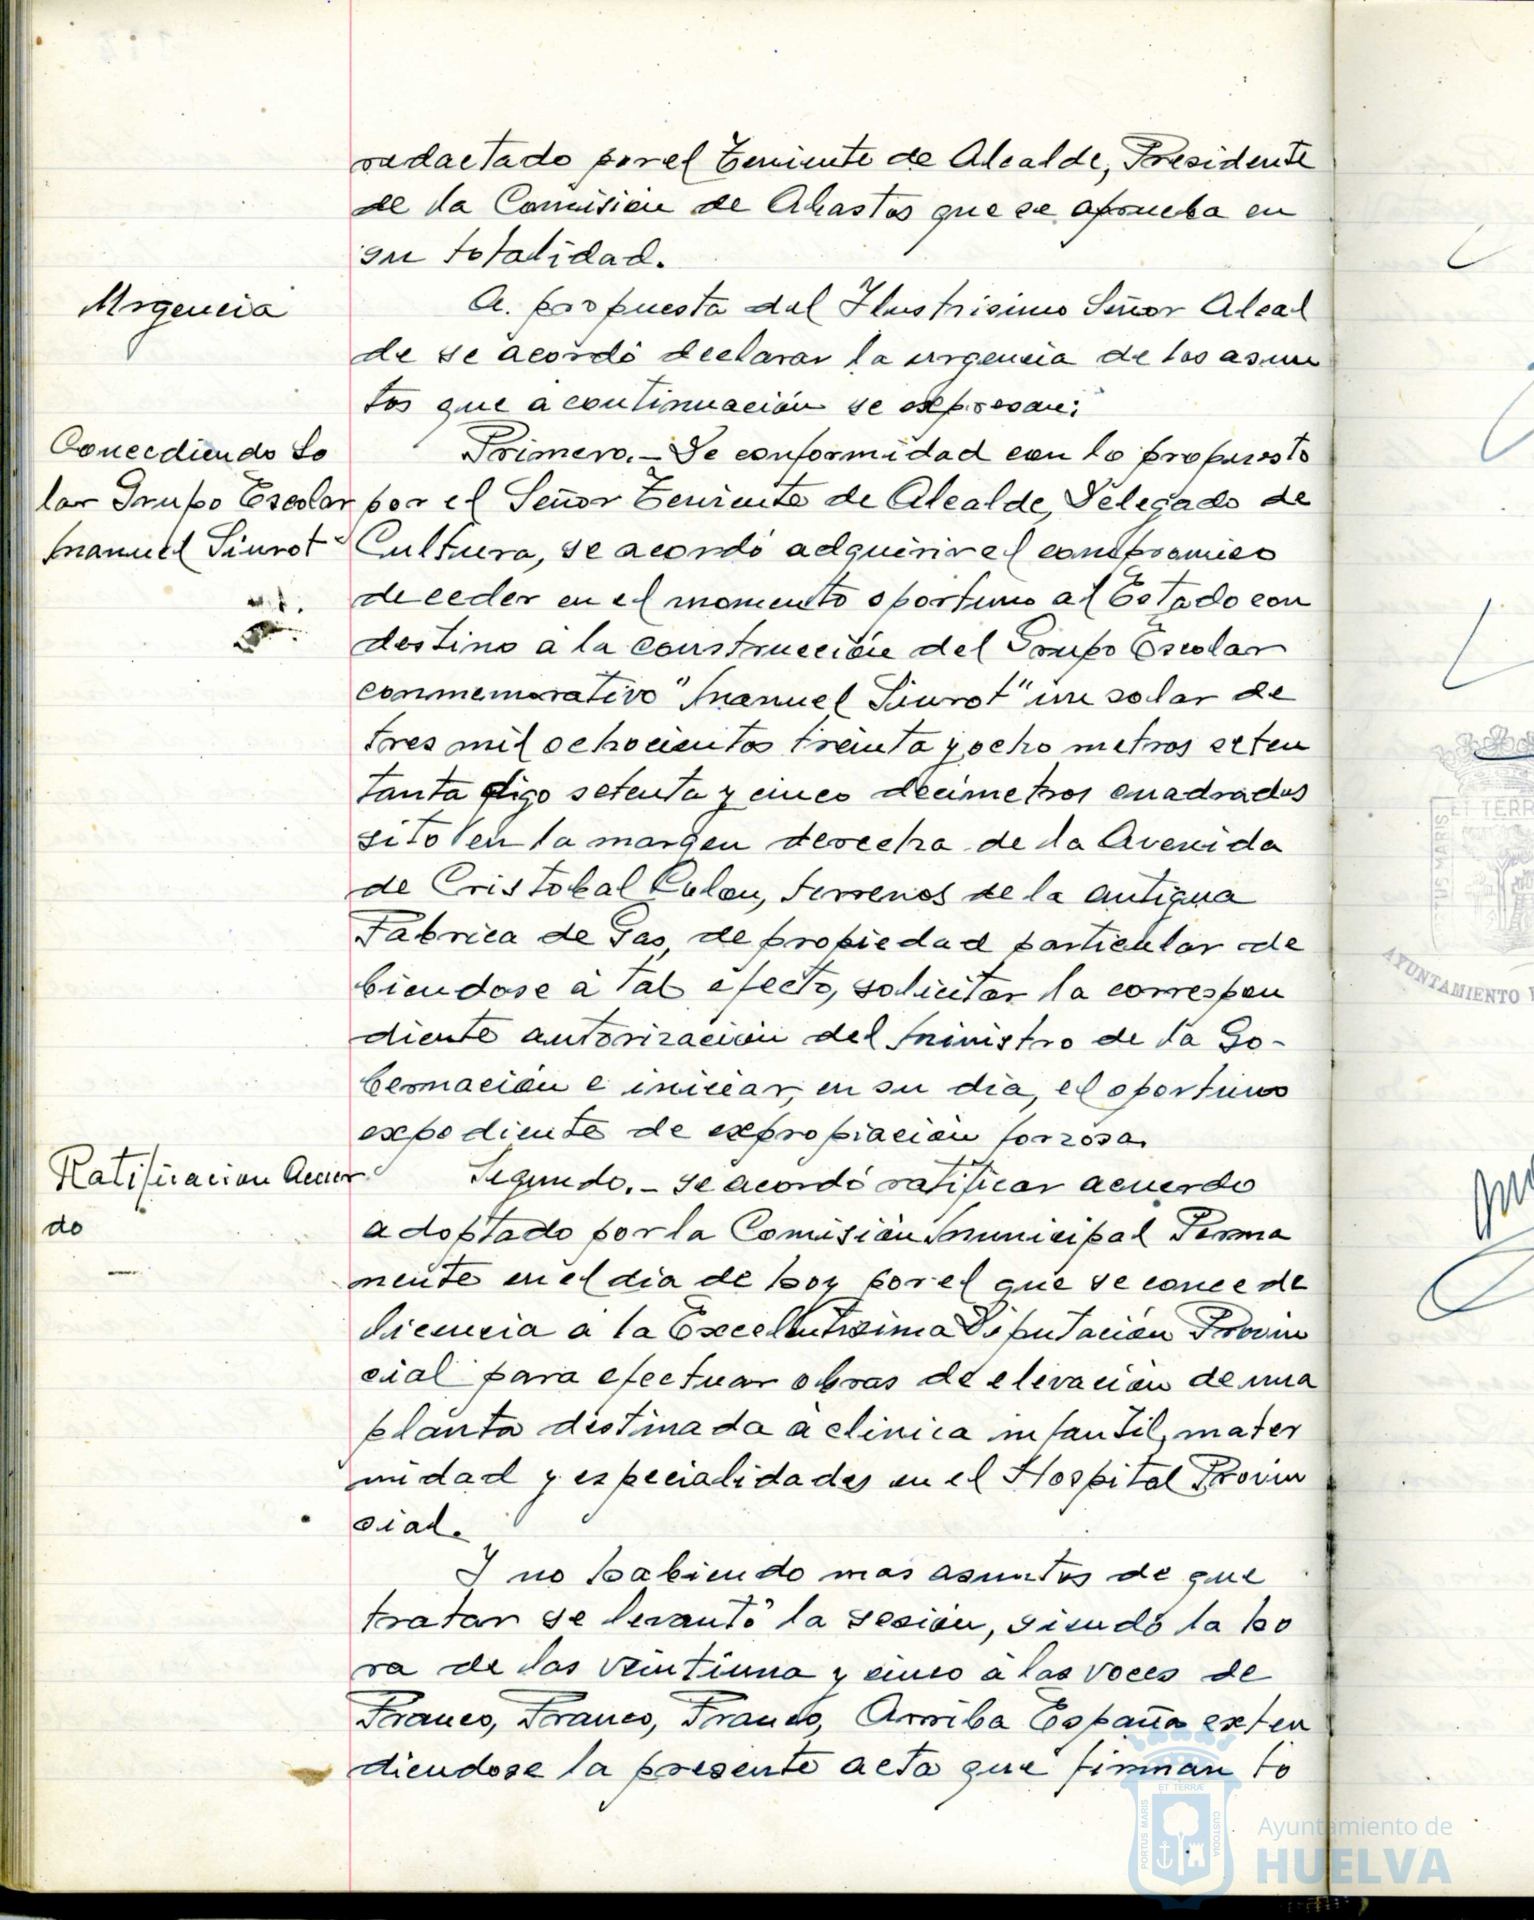 redactado por el Teniente de Alcalde, Presidente
de la Comisión de Abastos que se aprueba en
su totalidad.
Urgencia
A. propuesta del Ilustrisimo Señor Alcal
de se acordó declarar la urgencia de los asun
tos que a continuación se expresan:
Concediendo So
lar Grupo Escolar
Manuel Siurot"
Primero.- De conformidad con lo propuesto
por el Señor Teniente de Alcalde, Delegado de
Cultura, se acordó adquirir el compromiso
de ceder en el momento oportuno al Estado con
destino a la construcción del Grupo Escolar
conmemorativo "Manuel Siurot" un solar de
tres mil ochocientos treinta y ocho metros seten
tanta digo setenta y cinco decímetros cuadrados
sito en la margen derecha de la Avenida
de Cristobal Colon, terrenos de la antigua
Fabrica de Gas, de propiedad particular de
biendose a tal efecto, solicitar la correspon
diente autorización del Ministro de la Go-
bernación e iniciar, en su dia, el oportuno
expediente de expropiación forzosa.
Ratificacion Acuer
do
Segundo.- se acordó ratificar acuerdo
adoptado por la Comisión Municipal Perma
nente en el dia de hoy por el que se concede
licencia a la Excelentisima Diputación Provin
cial para efectuar obras de elevación de una
planta destinada a clinica infantil, mater
nidad y especialidades en el Hospital Provin
cial.
Y no habiendo mas asuntos de que
tratar se levantó la sesión, siendo la ho
ra de las veintiuna y cinco a las voces de
Franco, Franco, Franco, Arriba España exten
diendose la presente acta que firman to
ET TERR
S MARIS
AYUNTAMIENTO
PORTUS MARIS
ET TERRÆ
CUSTODIA
Ayuntamiento de
HUELVA